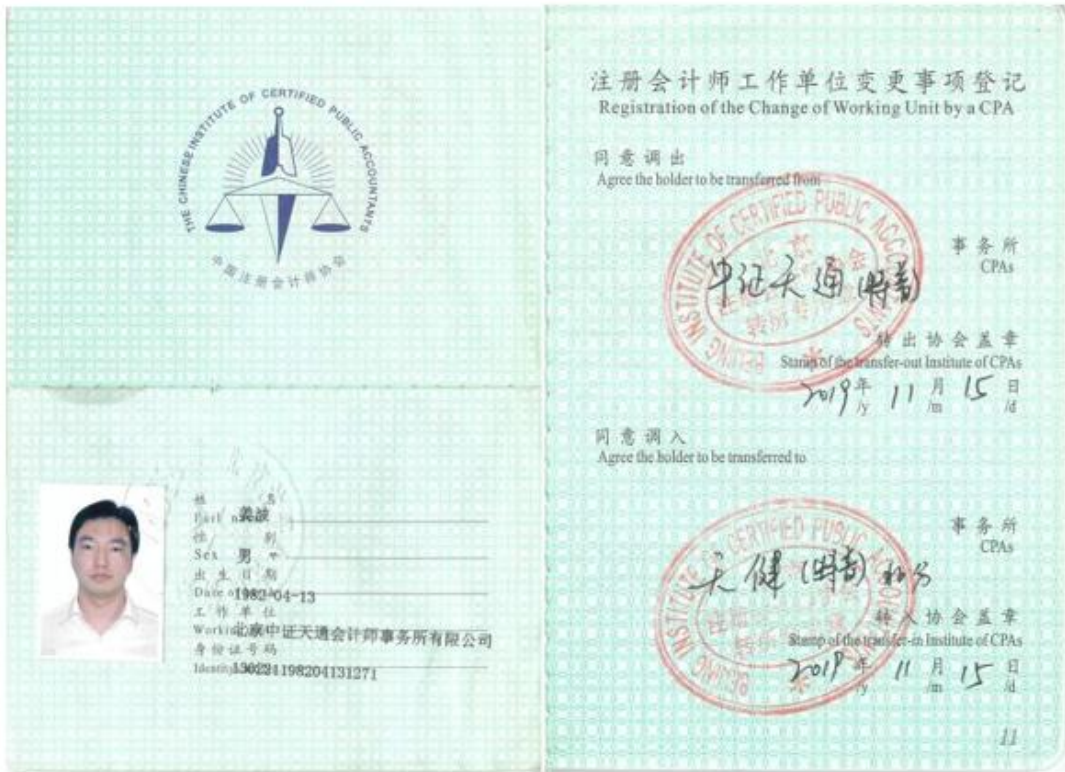 THE CHINESE INSTITUTE OF CERTIFIED PUBLIC ACCOUNTANTS
中国注册会计师协会
姓 名
Full name 姜波
性 别
Sex 男
出 生 日 期
Date of 1982-04-13
工 作 单 位
Working 北京中证天通会计师事务所有限公司
身 份 证 号 码
Identity
注册会计师工作单位变更事项登记
Registration of the Change of Working Unit by a CPA
同意调出
Agree the holder to be transferred from
BEIJING INSTITUTE OF CERTIFIED PUBLIC ACCOUNTANTS
中证天通(特普)
事务所
CPAs
转出协会盖章
Stamp of the transfer-out Institute of CPAs
2019年 11月 15日
/y /m /d
同意调入
Agree the holder to be transferred to
BEIJING INSTITUTE OF CERTIFIED PUBLIC ACCOUNTANTS
天健(特普)
事务所
CPAs
转入协会盖章
Stamp of the transfer-in Institute of CPAs
2019年 11月 15日
/y /m /d
11